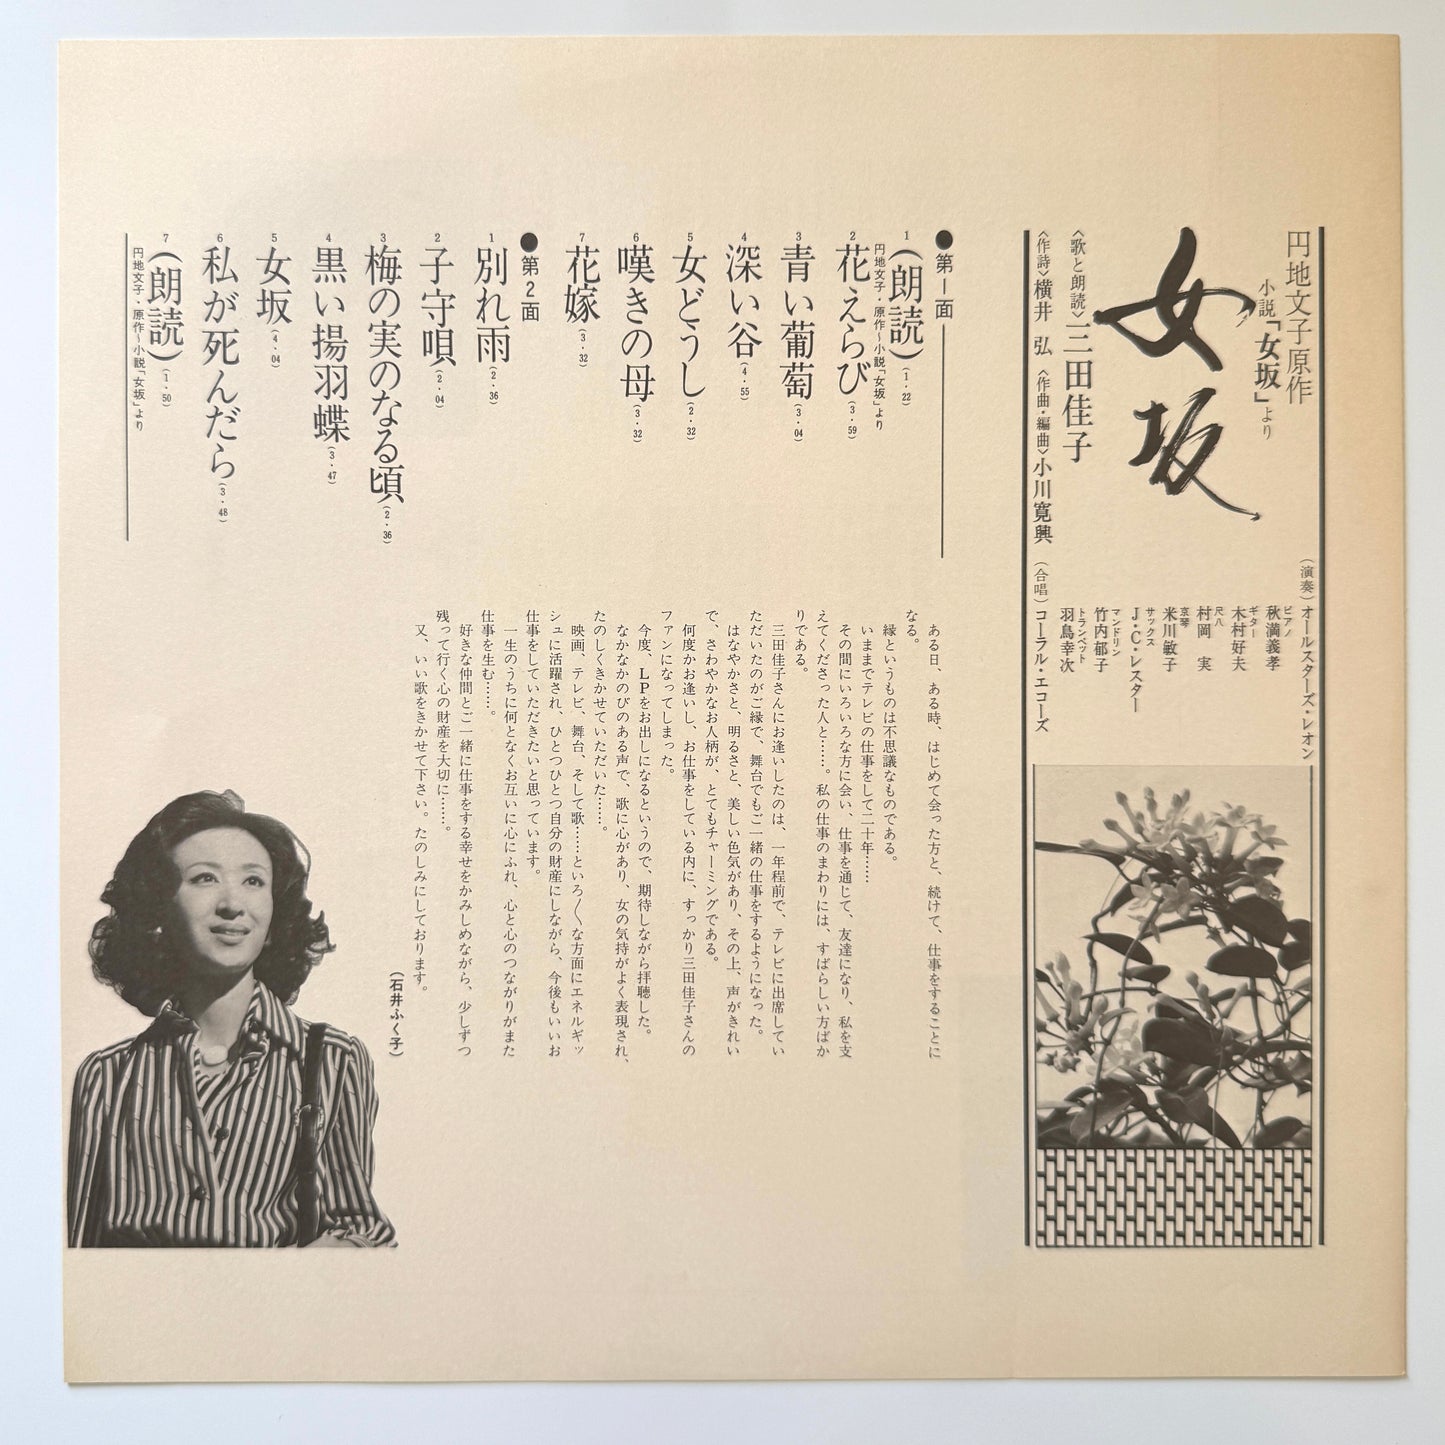 円地文子原作
小説「女坂」より
女坂
〈歌と朗読〉三田佳子
〈作詩〉横井 弘 〈作曲・編曲〉小川寛興
(演奏)オールスターズ・レオン
ピアノ
秋満義孝
ギター
木村好夫
尺八
村岡 実
京琴
米川敏子
サックス
J・C・レスター
マンドリン
竹内郁子
トランペット
羽鳥幸次
(合唱)コーラル・エコーズ
●第1面
1(朗読)(1・22)
円地文子・原作〜小説「女坂」より
2花えらび(3・59)
3青い葡萄(3・04)
4深い谷(4・55)
5女どうし(2・32)
6嘆きの母(3・32)
7花嫁(3・32)
●第2面
1別れ雨(2・36)
2子守唄(2・04)
3梅の実のなる頃(2・36)
4黒い揚羽蝶(3・47)
5女坂(4・04)
6私が死んだら(3・48)
7(朗読)(1・50)
円地文子・原作〜小説「女坂」より
ある日、ある時、はじめて会った方と、続けて、仕事をすることに
なる。
縁というものは不思議なものである。
いままでテレビの仕事をして二十年……
その間にいろいろな方に会い、仕事を通じて、友達になり、私を支
えてくださった人と……。私の仕事のまわりには、すばらしい方ばか
りである。
三田佳子さんにお逢いしたのは、一年程前で、テレビに出席してい
ただいたのがご縁で、舞台でもご一緒の仕事をするようになった。
はなやかさと、明るさと、美しい色気があり、その上、声がきれい
で、さわやかなお人柄が、とてもチャーミングである。
何度かお逢いし、お仕事をしている内に、すっかり三田佳子さんの
ファンになってしまった。
今度、LPをお出しになるというので、期待しながら拝聴した。
なかなかのびのある声で、歌に心があり、女の気持がよく表現され、
たのしくきかせていただいた……。
映画、テレビ、舞台、そして歌……といろ〱な方面にエネルギッ
シュに活躍され、ひとつひとつ自分の財産にしながら、今後もいいお
仕事をしていただきたいと思っています。
一生のうちに何となくお互いに心にふれ、心と心のつながりがまた
仕事を生む……。
好きな仲間とご一緒に仕事をする幸せをかみしめながら、少しずつ
残って行く心の財産を大切に……。
又、いい歌をきかせて下さい。たのしみにしております。
(石井ふく子)